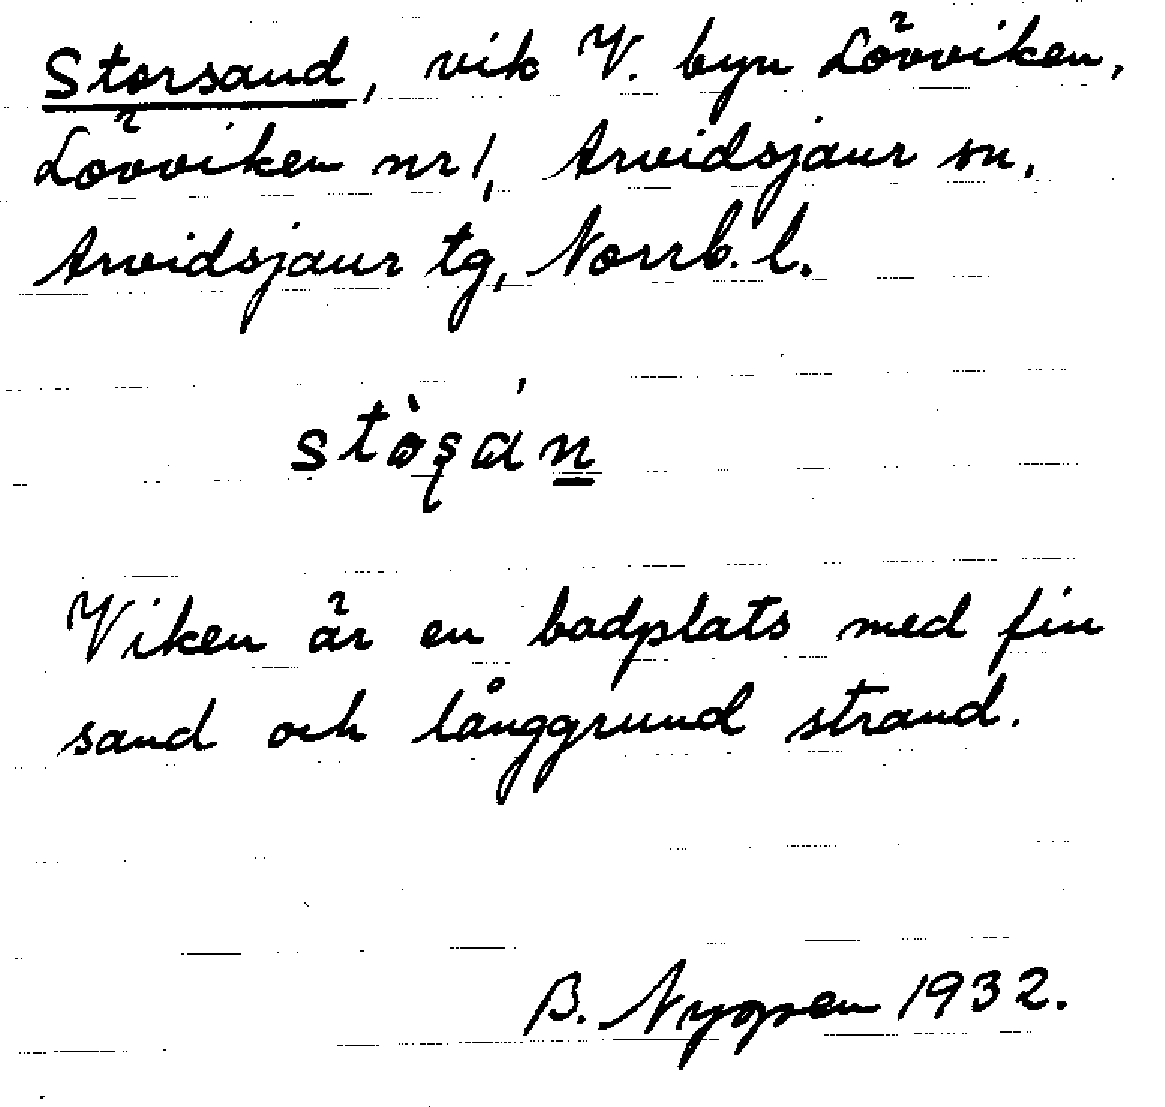 Storsand, vik V. byn Lövviken,
Lövviken nr 1, Arvidsjaur sn,
Arvidsjaur tg, Norrb. l.
stòʂán
Viken är en badplats med fin
sand och långgrund strand.
B. 1932.